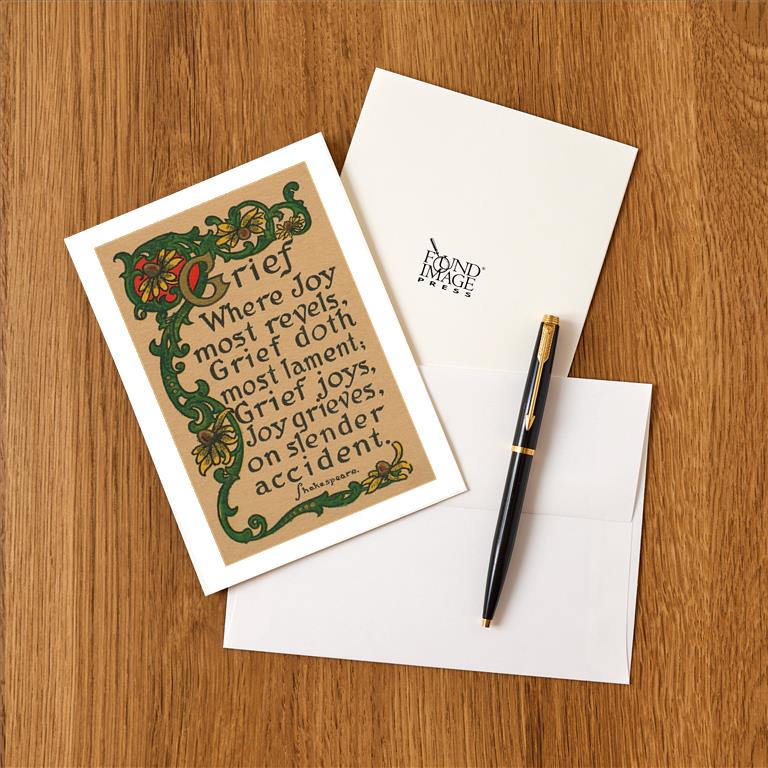 Grief
Where Joy
most revels,
Grief doth
most lament;
Grief joys,
Joy grieves,
on slender
accident.
Shakespeare.
FOUND
IMAGE®
PRESS